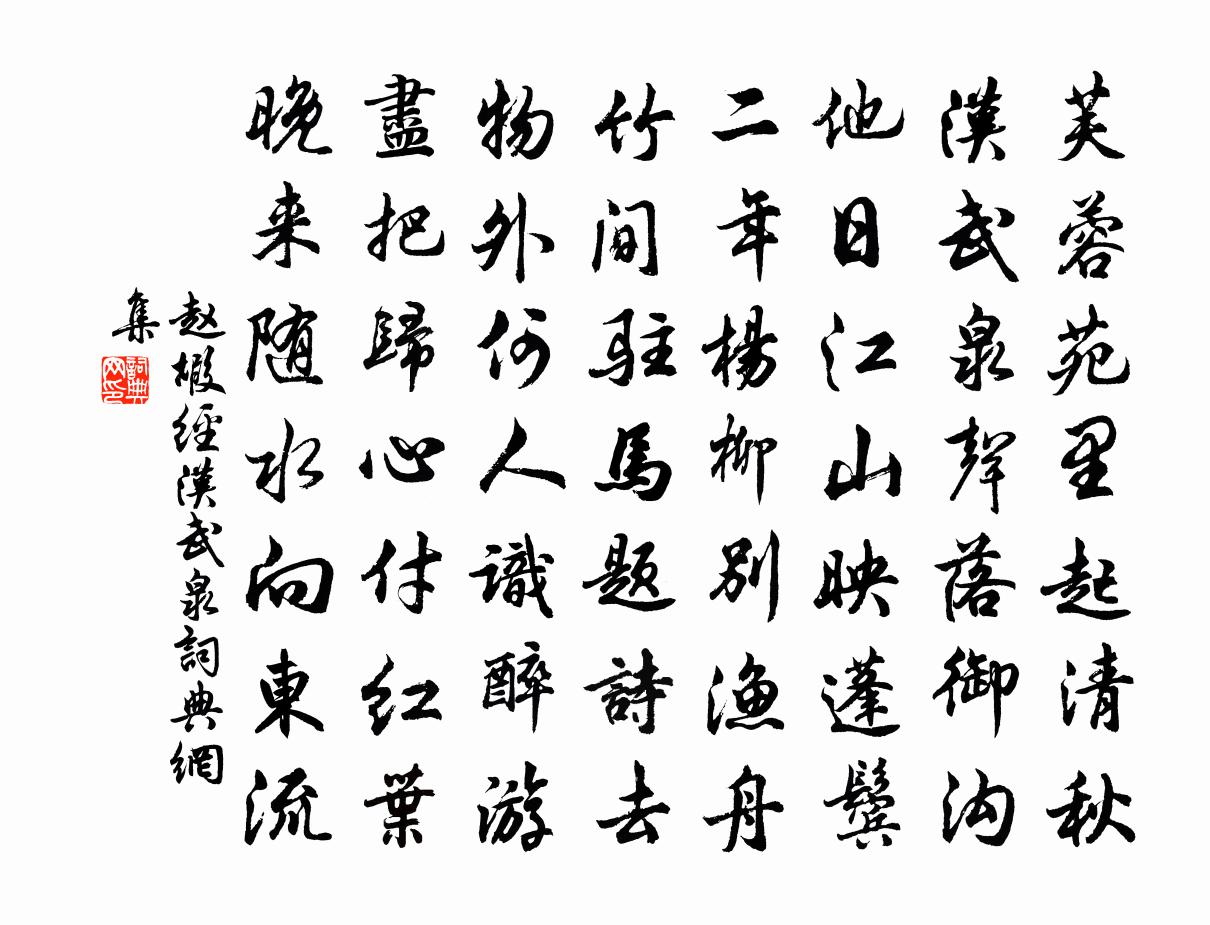 芙蓉苑里起清秋
漢武泉聲落御沟
他日江山映蓬鬢
二年楊柳別漁舟
竹間駐馬題詩去
物外何人識醉游
盡把歸心付红葉
晚来随水向東流
赵嘏經漢武泉詞典網
集
詞典
网印